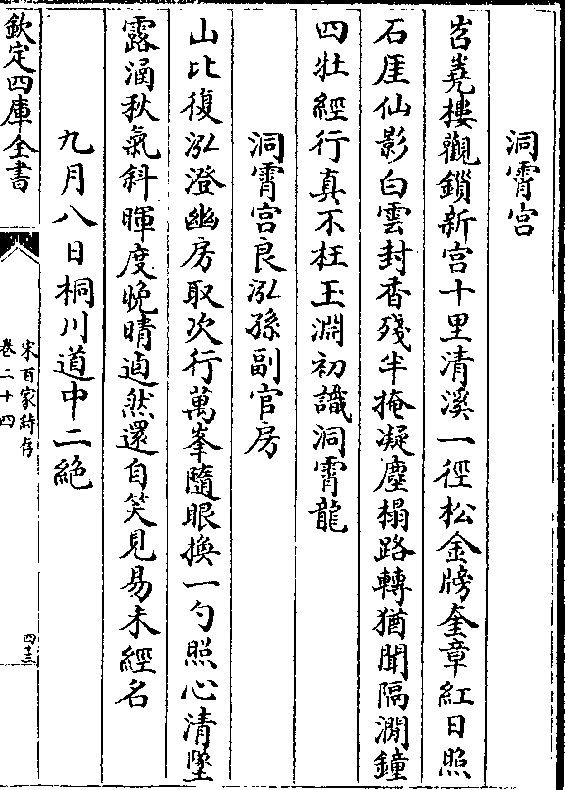 洞霄宫
岧嶤樓觀鎖新宫十里清溪一徑松金牓奎章紅日照
石厓仙影白雲封香殘半掩凝塵榻路轉猶聞隔澗鐘
四壯經行真不枉玉淵初識洞霄龍
洞霄宫良泓孫副官房
山比復泓澄幽房取次行萬峯隨眼換一勺照心清墜
露涵秋氣斜暉度晚晴逌然還自笑見易未經名
九月八日桐川道中二絶
欽定四庫全書
宋百家詩存
卷二十四
四十三